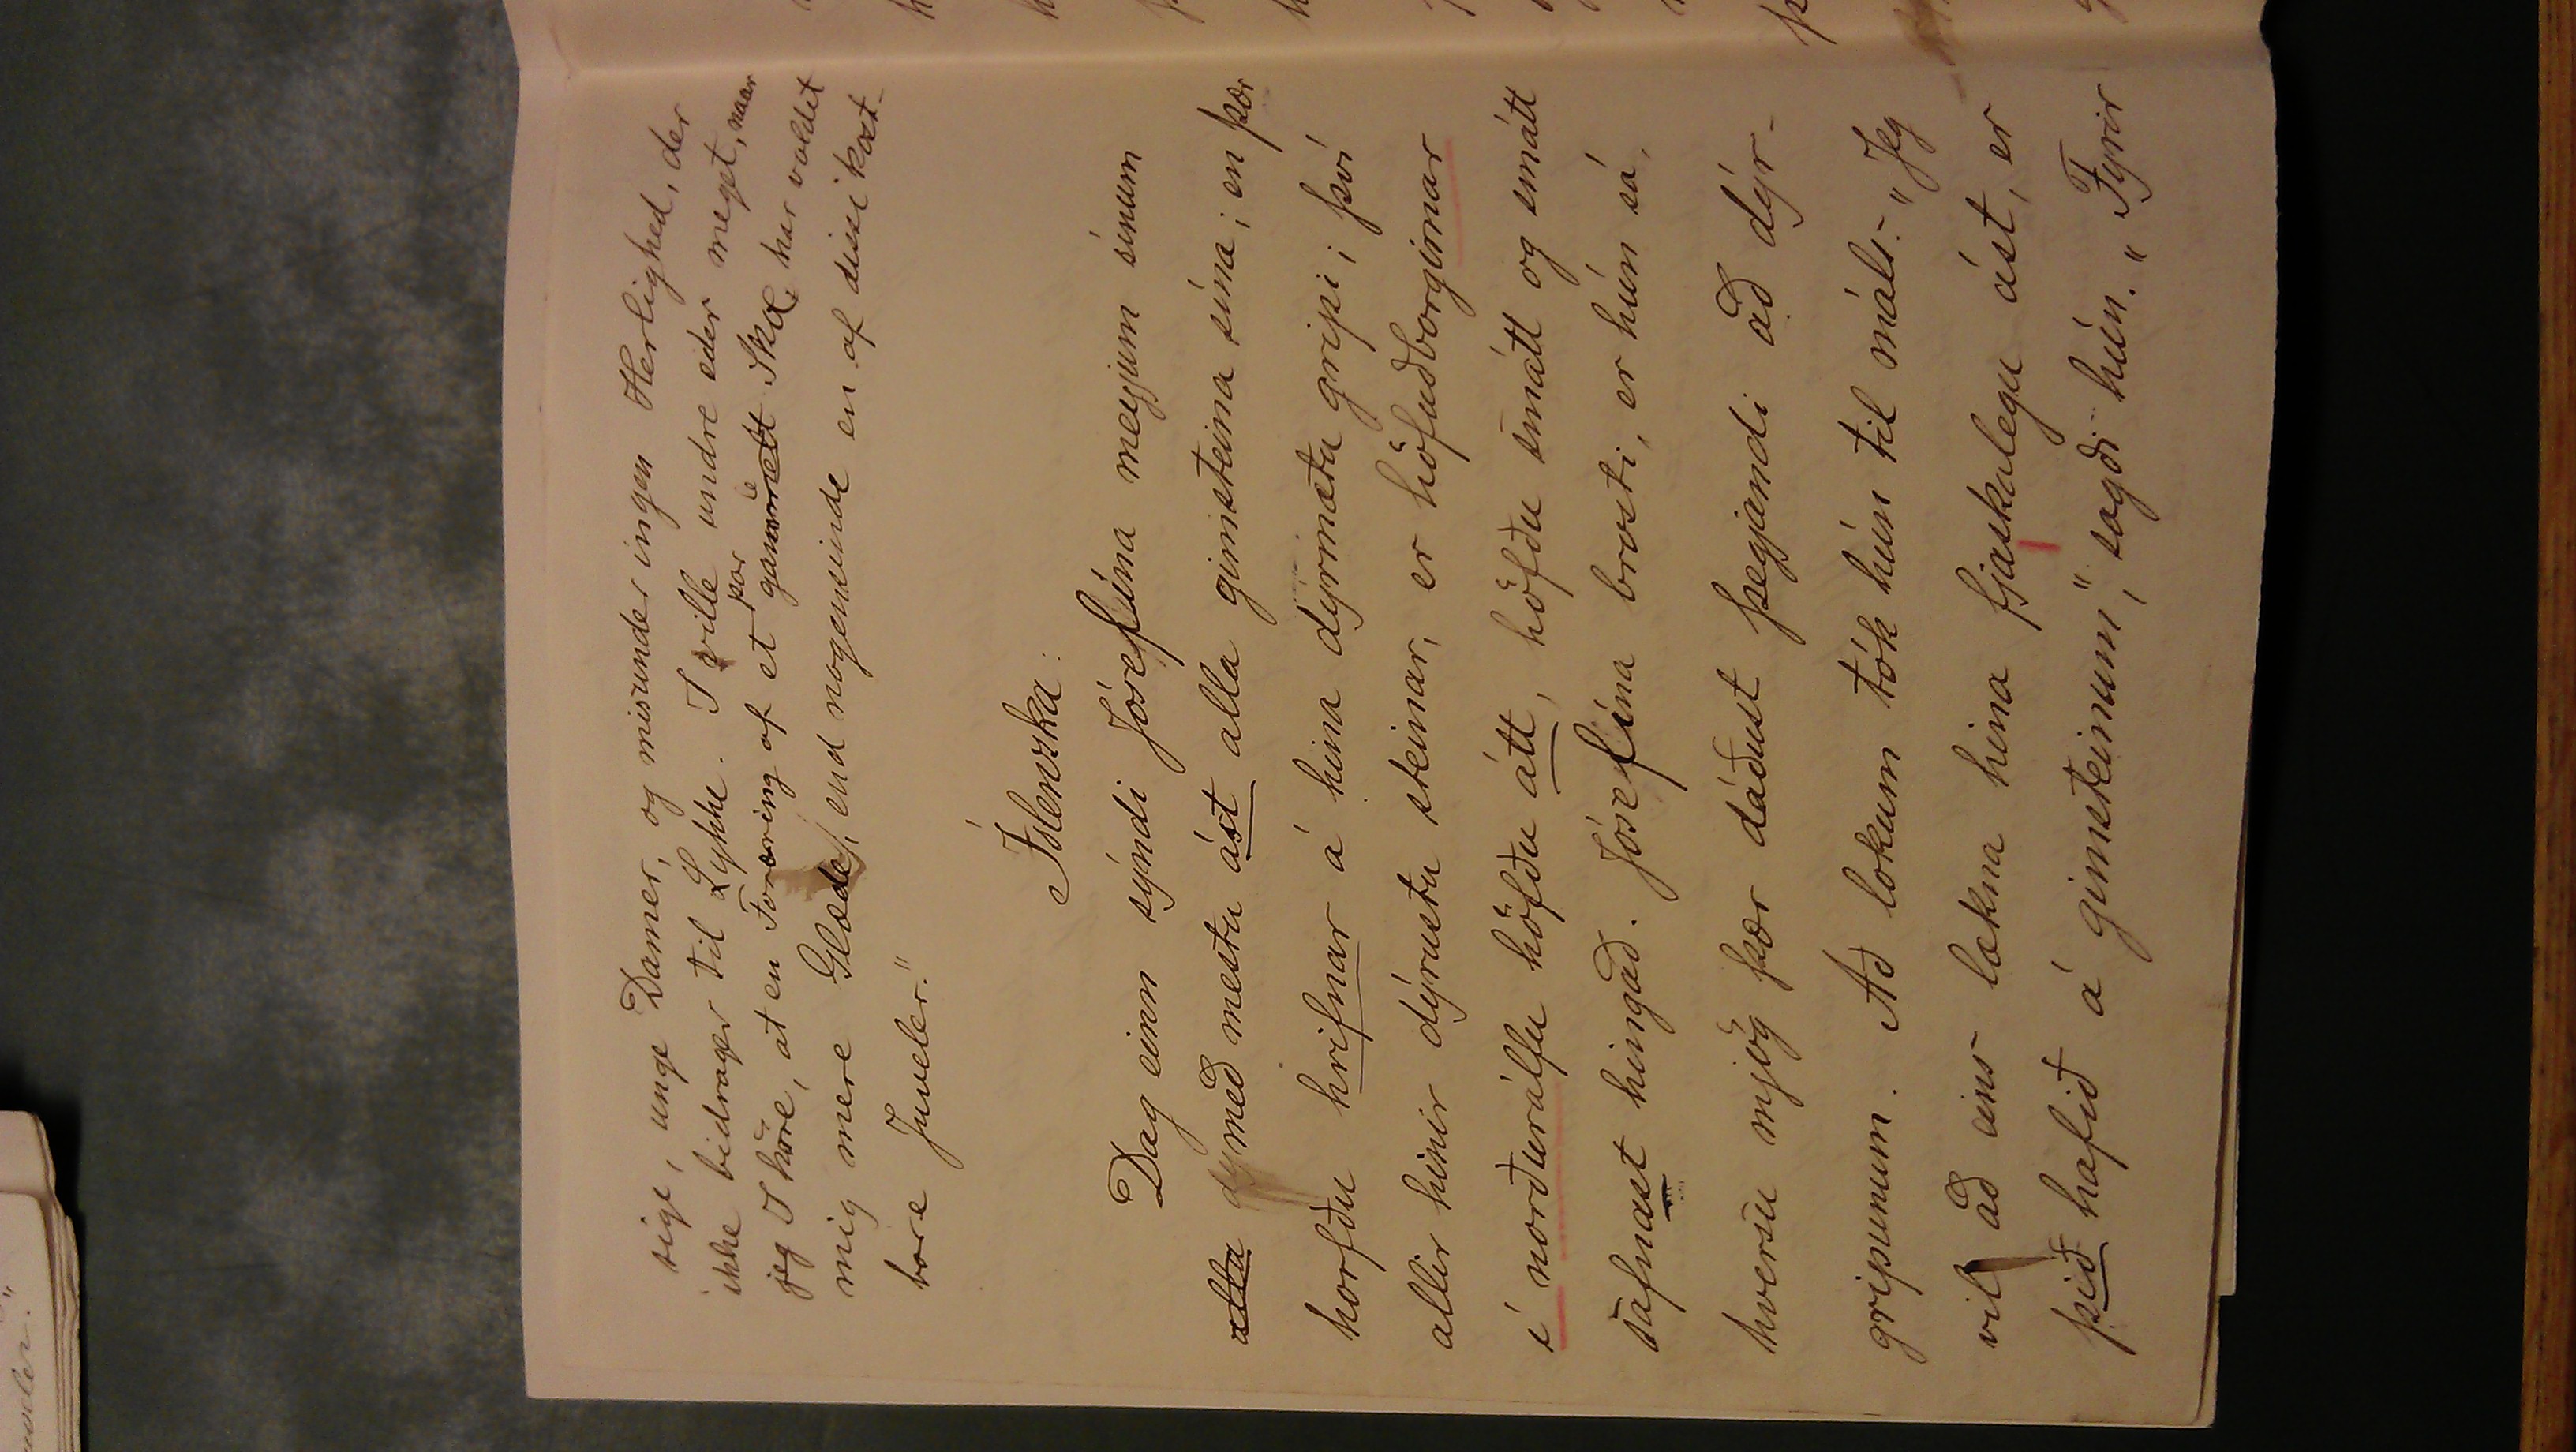 sige, unge Damer, og misunder ingen Herlighed, der
ikke bidrager til Lykke. I ville undre eder meget, naar
jeg I höre, at en Foræring af et par gamle Sko, har voldet
mig mere Glæde, end nogensinde en af disse kost-
bare Juveler."
Íslenzka:
Dag einn sýndi Jósefína meyjum sínum
alla með mestu ást alla gimsteina sína; en þær
horfðu hrifnar á hina dýrmætu gripi; því
allir hinir dýrustu steinar, er höfuðborgirnar
í norðurálfu höfðu átt, höfðu smátt og smátt
safnast hingað. Jósefína brosti, er hún sá,
hversu mjög þær dáðust þegjandi að dýr-
gripunum. Að lokum tók hún til máls: "Jeg
vil að eins lækna hina fjaskalegu ást, er
þið hafið á gimsteinum", sagði hún. "Fyrir